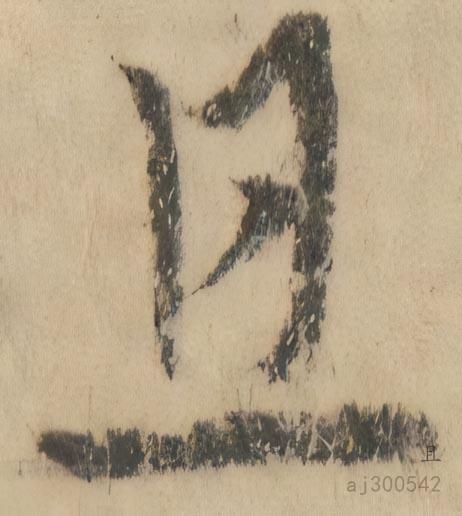 且
且
aj300542